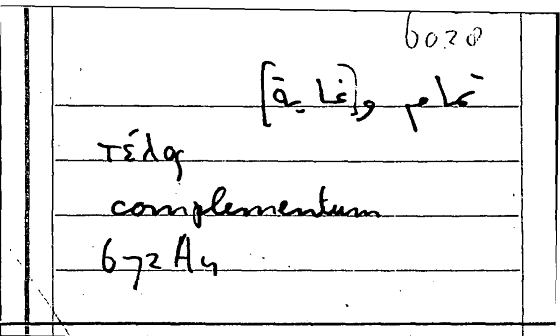 6028
تمام و[غاية]
τέλος
complementum
672 A4